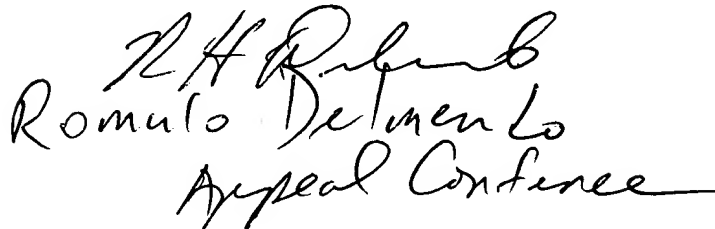 R H
Romulo Delmendo
Appeal Conferee